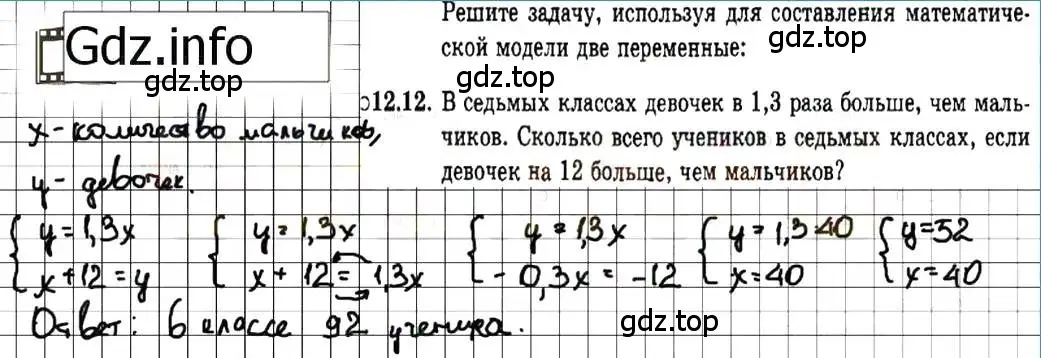 Gdz.info
gdz.top
Решите задачу, используя для составления математиче-
ской модели две переменные:
gdz.top
gdz.top
12.12. В седьмых классах девочек в 1,3 раза больше, чем маль-
чиков. Сколько всего учеников в седьмых классах, если
девочек на 12 больше, чем мальчиков?
x - количество мальчиков,
y - девочек.
{ y = 1,3x { y = 1,3x { y = 1,3x { y = 1,3·40 { y = 52
{ x + 12 = y { x + 12 = 1,3x { - 0,3x = -12 { x = 40 { x = 40
Ответ: в классе 92 ученика.
gdz.top